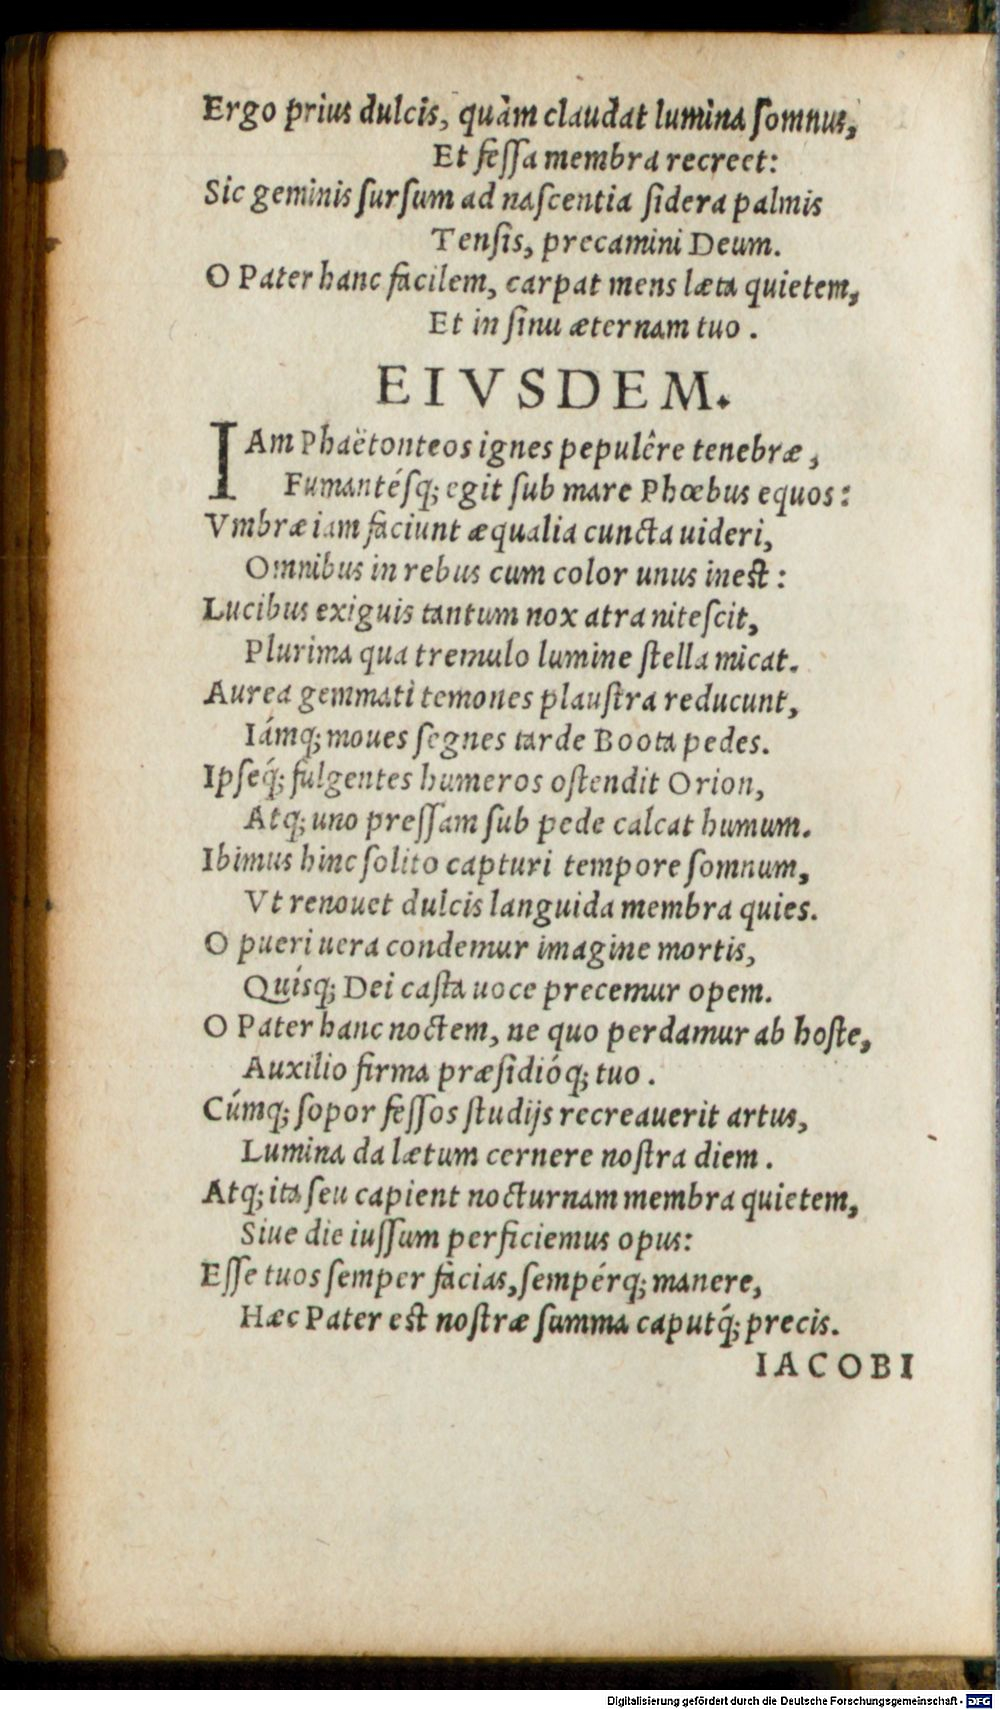 Ergo prius dulcis, quàm claudat lumina ſomnus,
Et feſſa membra recreet:
Sic geminis ſurſum ad naſcentia ſidera palmis
Tenſis, precamini Deum.
O Pater hanc facilem, carpat mens læta quietem,
Et in ſinu æternam tuo .
EIVSDEM.
IAm Phaëtonteos ignes pepulêre tenebræ ,
Fumantéſq; egit ſub mare Phœbus equos :
Vmbræ iam faciunt æqualia cuncta uideri,
Omnibus in rebus cum color unus inest :
Lucibus exiguis tantum nox atra niteſcit,
Plurima qua tremulo lumine ſtella micat.
Aurea gemmati temones plauſtra reducunt,
Iámq; moues ſegnes tarde Boota pedes.
Ipſeq́; fulgentes humeros oſtendit Orion,
Atq; uno preſſam ſub pede calcat humum.
Ibimus hinc ſolito capturi tempore ſomnum,
Vt renouet dulcis languida membra quies.
O pueri uera condemur imagine mortis,
Quíſq; Dei caſta uoce precemur opem.
O Pater hanc noctem, ne quo perdamur ab hoſte,
Auxilio firma præſidióq; tuo .
Cúmq; ſopor feſſos ſtudijs recreauerit artus,
Lumina da lætum cernere noſtra diem .
Atq; ita ſeu capient nocturnam membra quietem,
Siue die iuſſum perficiemus opus:
Eſſe tuos ſemper facias, ſempérq; manere,
Hæc Pater est noſtræ ſumma caputq́; precis.
IACOBI
Digitalisierung gefördert durch die Deutsche Forschungsgemeinschaft - DFG